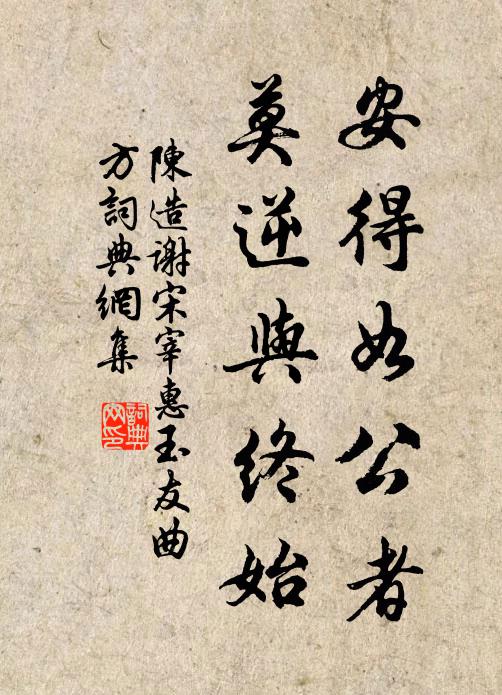 安得如公者
莫逆與終始
陳造謝宋宰惠玉友曲
方詞典網集
詞典
网印